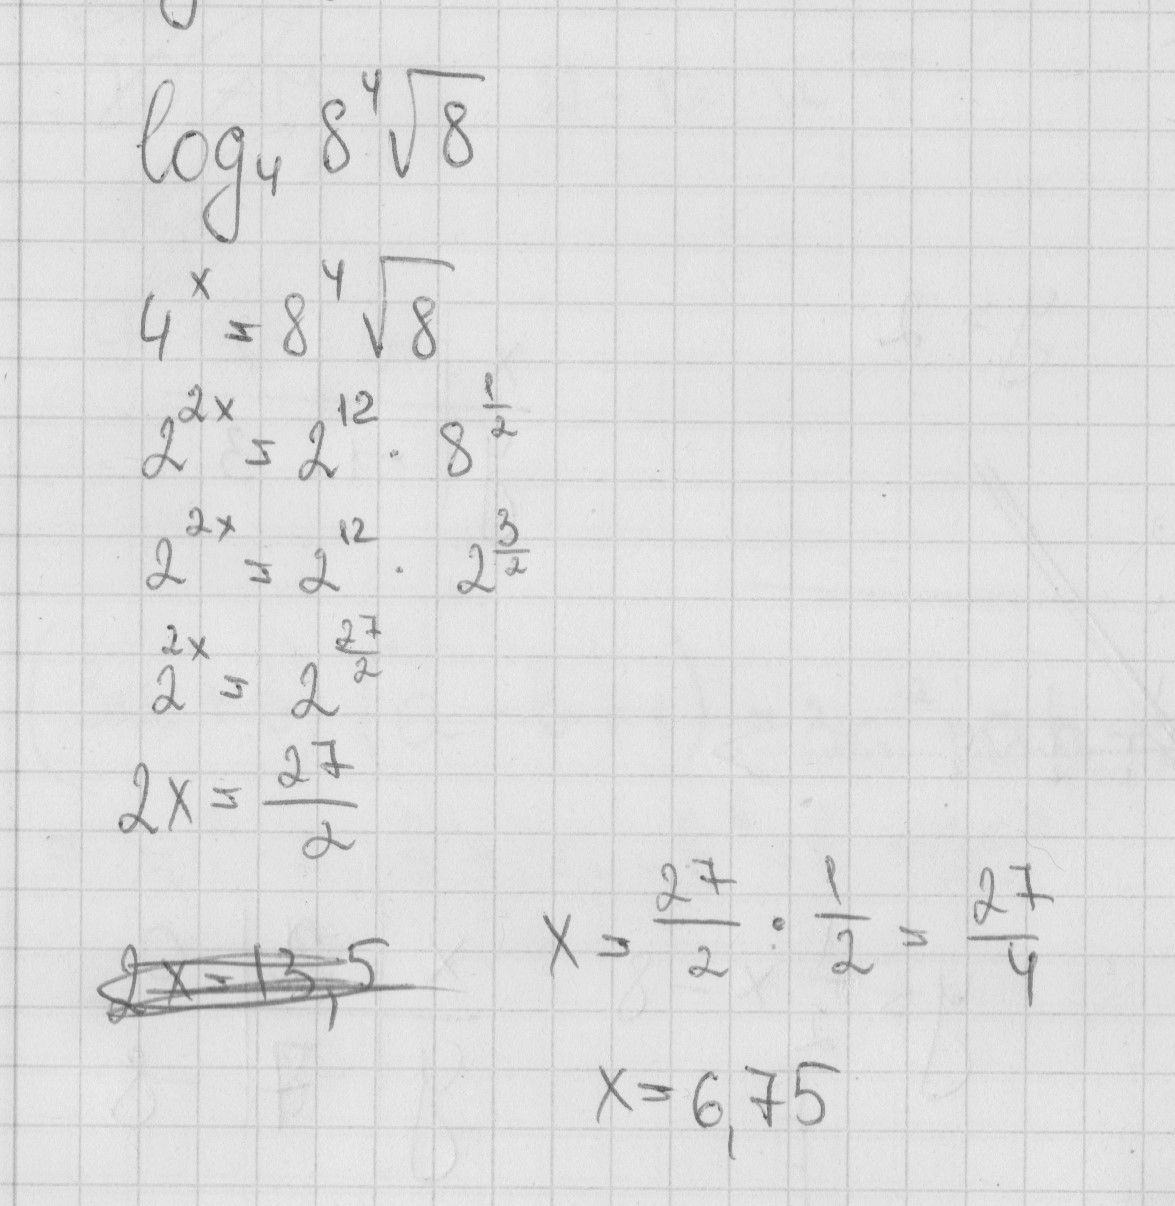 log₄ 8⁴√8
4ˣ = 8⁴√8
2^(2x) = 2^(12) · 8^(1/2)
2^(2x) = 2^(12) · 2^(3/2)
2^(2x) = 2^(27/2)
2x = 27/2
2x = 13,5
x = 27/2 · 1/2 = 27/4
x = 6,75